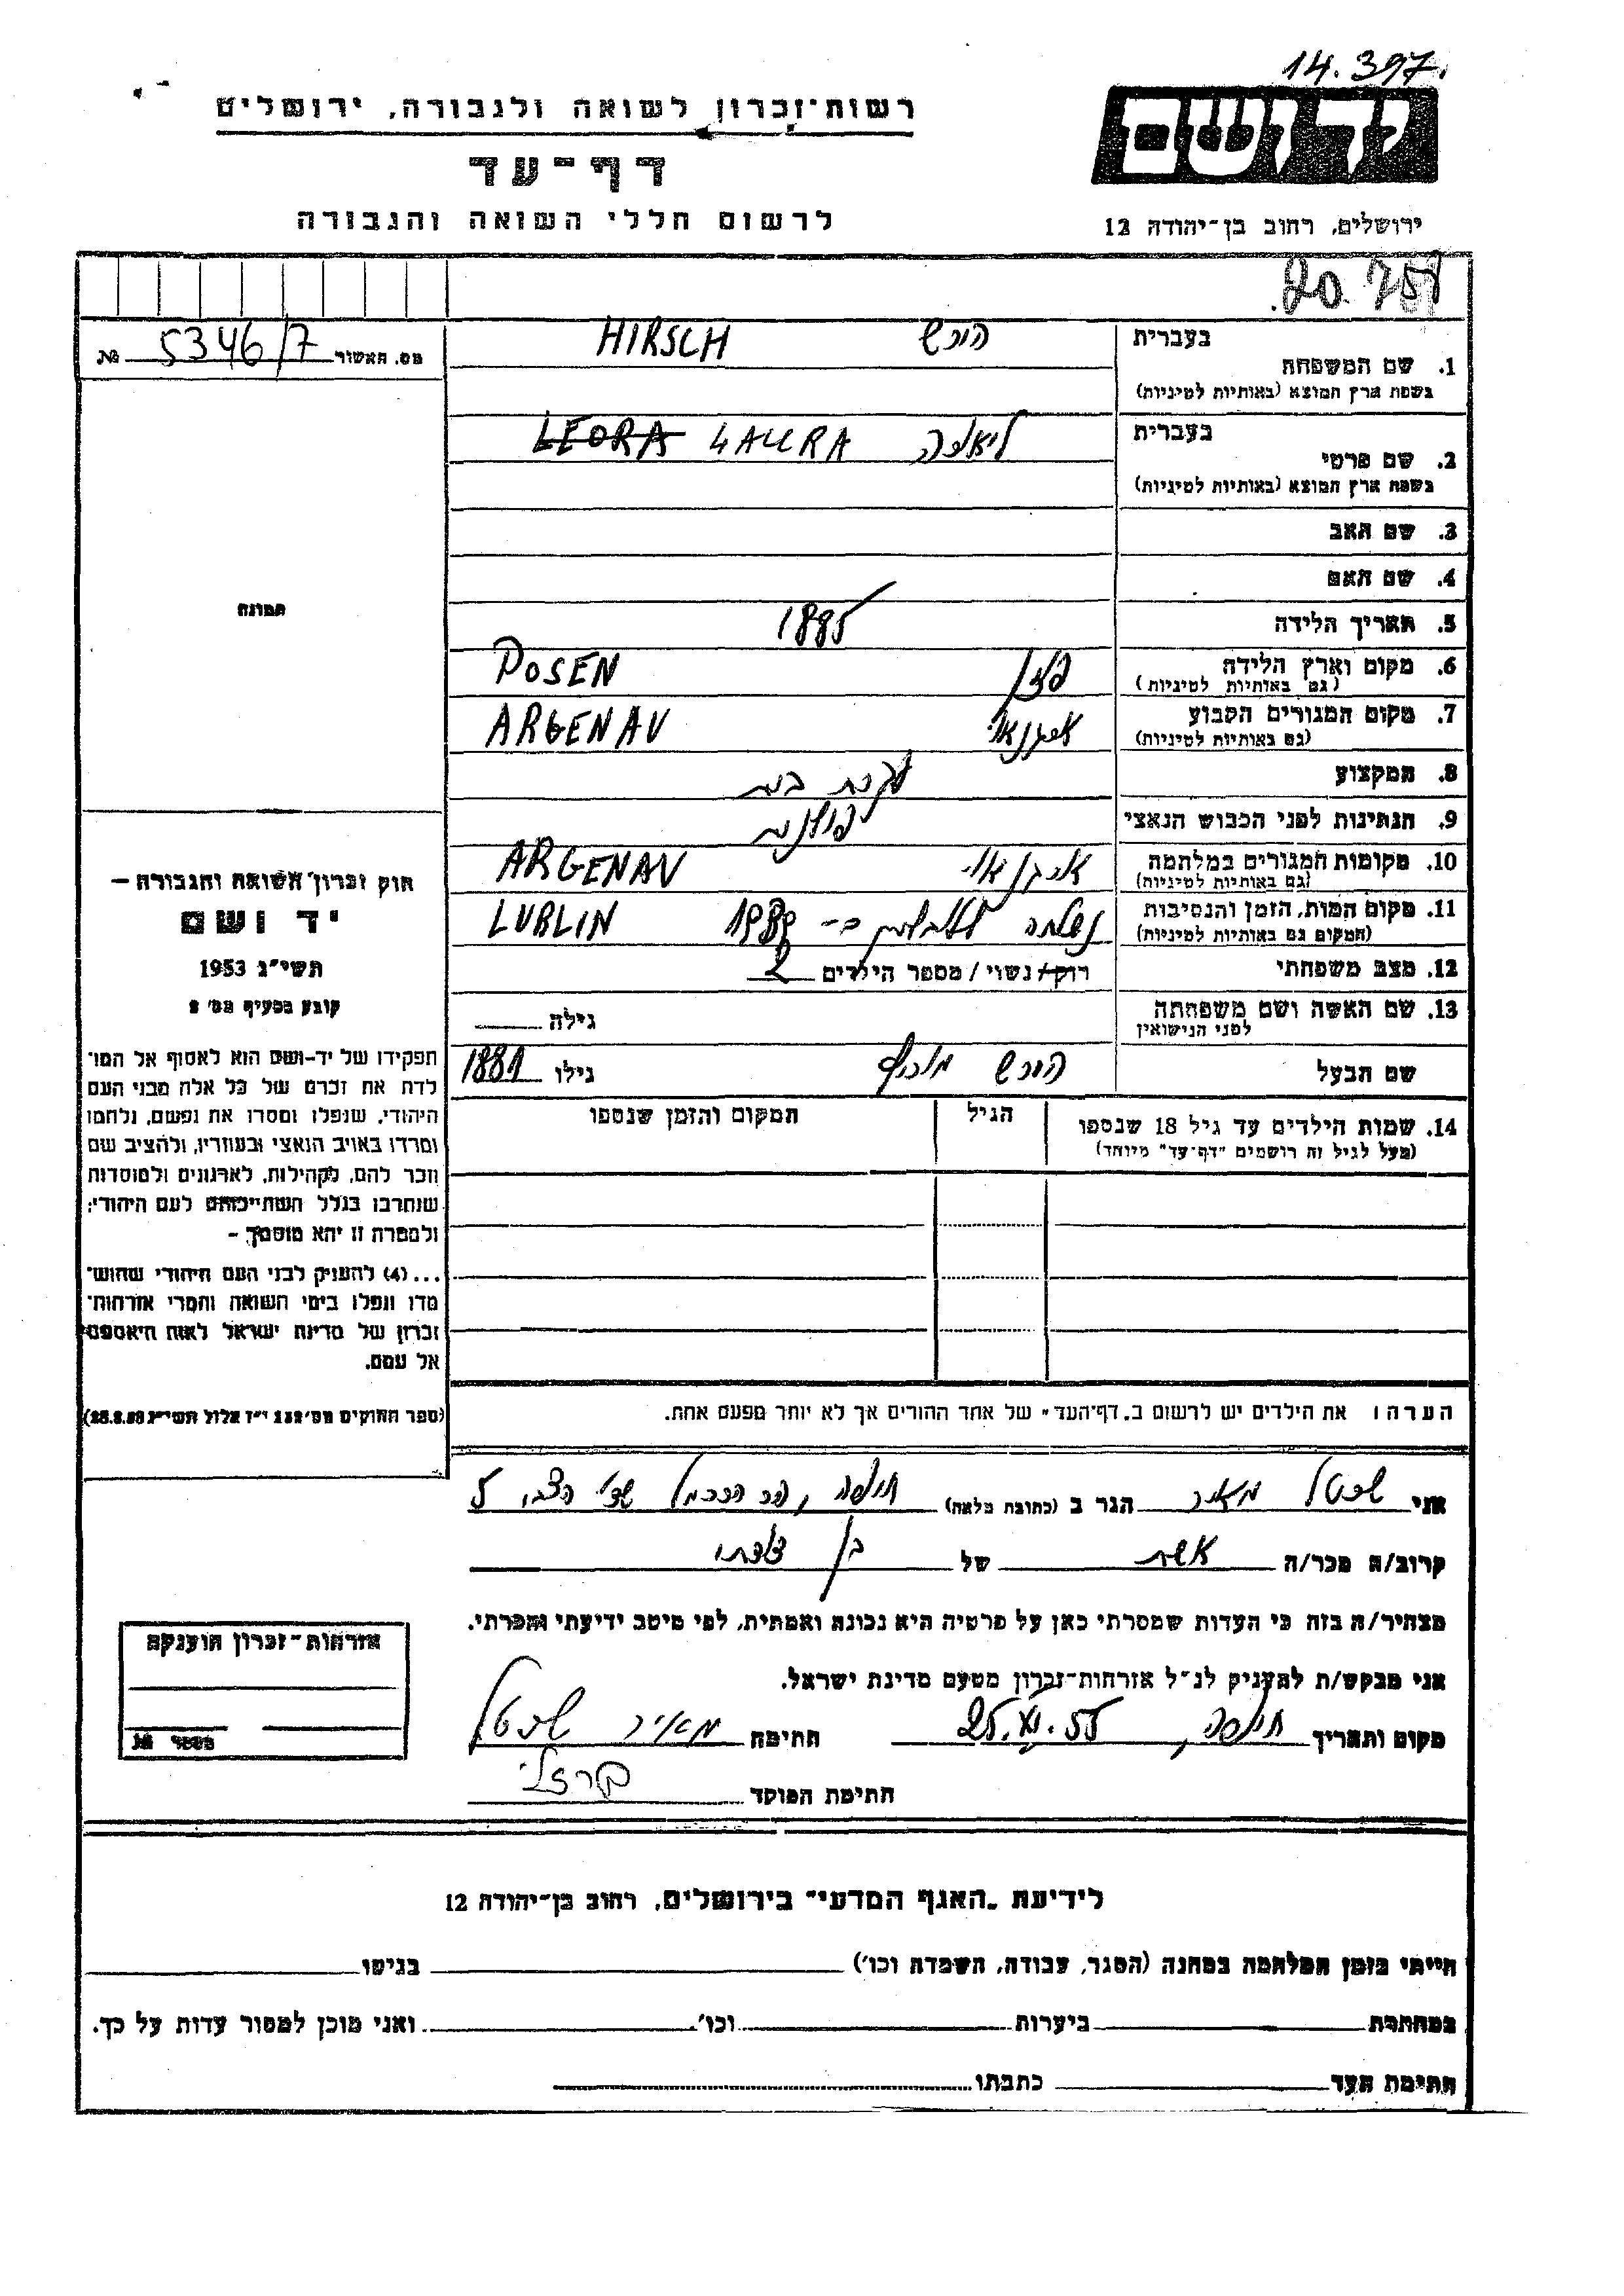 14.397.
רשות-זכרון לשואה ולגבורה, ירושלים
יד ושם
דף-עד
לרשום חללי השואה והגבורה
ירושלים, רחוב בן-יהודה 12
20 757
מס. האשור 5346/7 №
בעברית הירש HIRSCH
1. שם המשפחה
בשפת ארץ המוצא (באותיות לטיניות)
בעברית ליאורה LAURA LEORA
2. שם פרטי
בשפת ארץ המוצא (באותיות לטיניות)
3. שם האב
4. שם האם
5. תאריך הלידה 1885
6. מקום וארץ הלידה פוזן POSEN
(גם באותיות לטיניות)
7. מקום המגורים הקבוע ארגנאו ARGENAU
(גם באותיות לטיניות)
8. המקצוע עקרת בית
9. הנתינות לפני הכבוש הנאצי פולנית
10. מקומות המגורים במלחמה ארגנאו ARGENAU
(גם באותיות לטיניות)
11. מקום המות, הזמן והנסיבות נשלחה ללובלין ב- LUBLIN
(המקום גם באותיות לטיניות)
12. מצב משפחתי רוק/נשוי/מספר הילדים 2
13. שם האשה ושם משפחתה גילה
לפני הנישואין
שם הבעל הירש גילו 1881
14. שמות הילדים עד גיל 18 שנספו הגיל המקום והזמן שנספו
(מעל לגיל זה רושמים "דף-עד" מיוחד)
תמונה
חוק זכרון השואה והגבורה –
יד ושם
תשי"ג 1953
קובע בסעיף מס' 2
תפקידו של יד-ושם הוא לאסוף אל המו־
לדת את זכרם של כל אלה מבני העם
היהודי, שנפלו ומסרו את נפשם, נלחמו
ומרדו באויב הנאצי ובעוזריו, ולהציב שם
וזכר להם, לקהילות, לארגונים ולמוסדות
שנחרבו בגלל השתייכותם לעם היהודי;
ולמטרה זו יהא מוסמך –
...(4) להעניק לבני העם היהודי שהוש־
מדו ונפלו בימי השואה והמרי אזרחות־
זכרון של מדינת ישראל לאות היאספם
אל עמם.
(ספר החוקים מס' 132 י"ז אלול תשי"ג 28.8.53)
הערה: את הילדים יש לרשום ב"דף-העד" של אחד ההורים אך לא יותר מפעם אחת.
אני שבטל מאיר הגר ב (כתובת מלאה) חיפה, הר הכרמל 5
קרוב/ה מכר/ה אשת של בן דודתי
מצהיר/ה בזה כי העדות שמסרתי כאן על פרטיה היא נכונה ואמתית, לפי מיטב ידיעתי והכרתי.
אני מבקש/ת להעניק לנ"ל אזרחות-זכרון מטעם מדינת ישראל.
מקום ותאריך חיפה, 25.XI.55 חתימה מאיר שבטל
חתימת הפוקד ברזלי
אזרחות-זכרון הוענקה
מספר №
לידיעת "האגף המדעי" בירושלים, רחוב בן-יהודה 12
הייתי בזמן המלחמה במחנה (הסגר, עבודה, השמדה וכו') בגיטו
במחתרת ביערות וכו' ואני מוכן למסור עדות על כך.
חתימת העד כתבתו